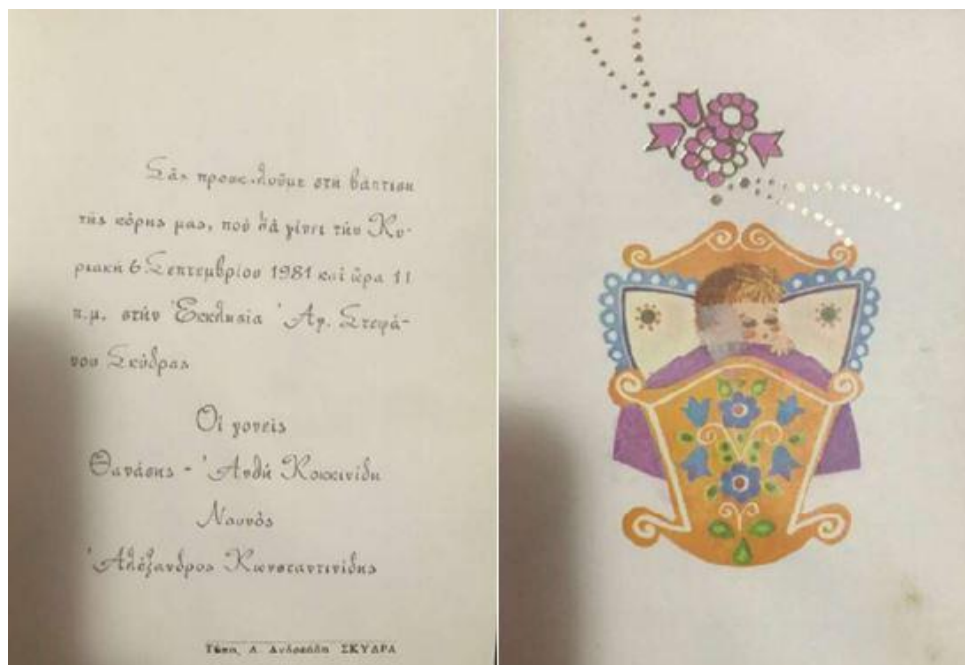 Σᾶς προσκαλοῦμε στή βάπτιση
τῆς κόρης μας, πού θά γίνει τήν Κυ-
ριακή 6 Σεπτεμβρίου 1981 καί ὥρα 11
π.μ. στήν Ἐκκλησία Ἁγ. Στεφά-
νου Σκύδρας
Οἱ γονεῖς
Θανάσης - Ἀνθή Κοκκινίδη
Νουνός
Ἀλέξανδρος Κωνσταντινίδης
Τύποις Λ. Ανδρεάδη ΣΚΥΔΡΑ